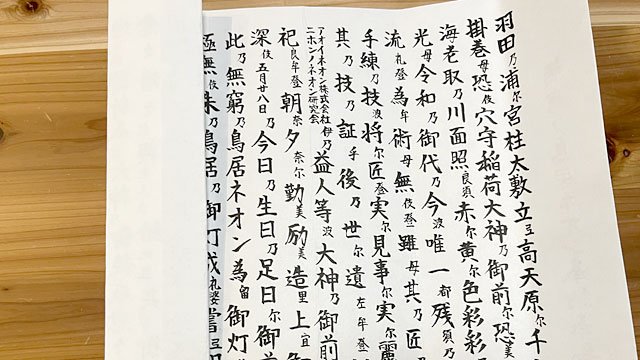 羽田乃浦尓宮柱太敷立弖高天原尓千
掛巻母恐伎穴守稲荷大神乃御前尓恐美
海老取乃川面照良須赤尓黄尓色彩彩
光母令和乃御代乃今波唯一都残須乃
流礼登為牟術母無伎登雖母其乃匠
手練乃技波将尓匠登実尓見事尓実尓麗
其乃技乃証乎後乃世尓遺左牟登
アオイネオン株式会社
ニホンノネオン研究会伊乃益人等波大神乃御前
祀良牟登朝奈夕奈尓勤美励美造里上宜
深伎五月廿八日乃今日乃生日乃足日尓御前
此乃無窮乃鳥居ネオン為留御灯
極無伎朱乃鳥居乃御灯成礼婆